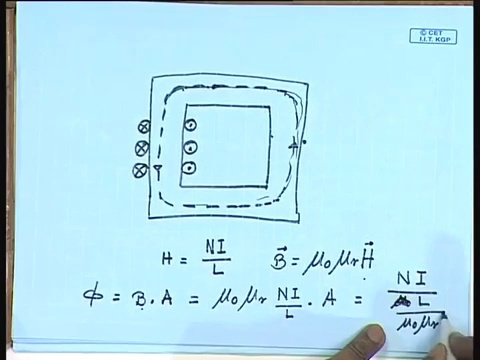 © CET
I.I.T. KGP
H = NI / L    B⃗ = μ₀μᵣH⃗
ϕ = B . A = μ₀μᵣ NI/L . A = NI / (L / μ₀μᵣ)